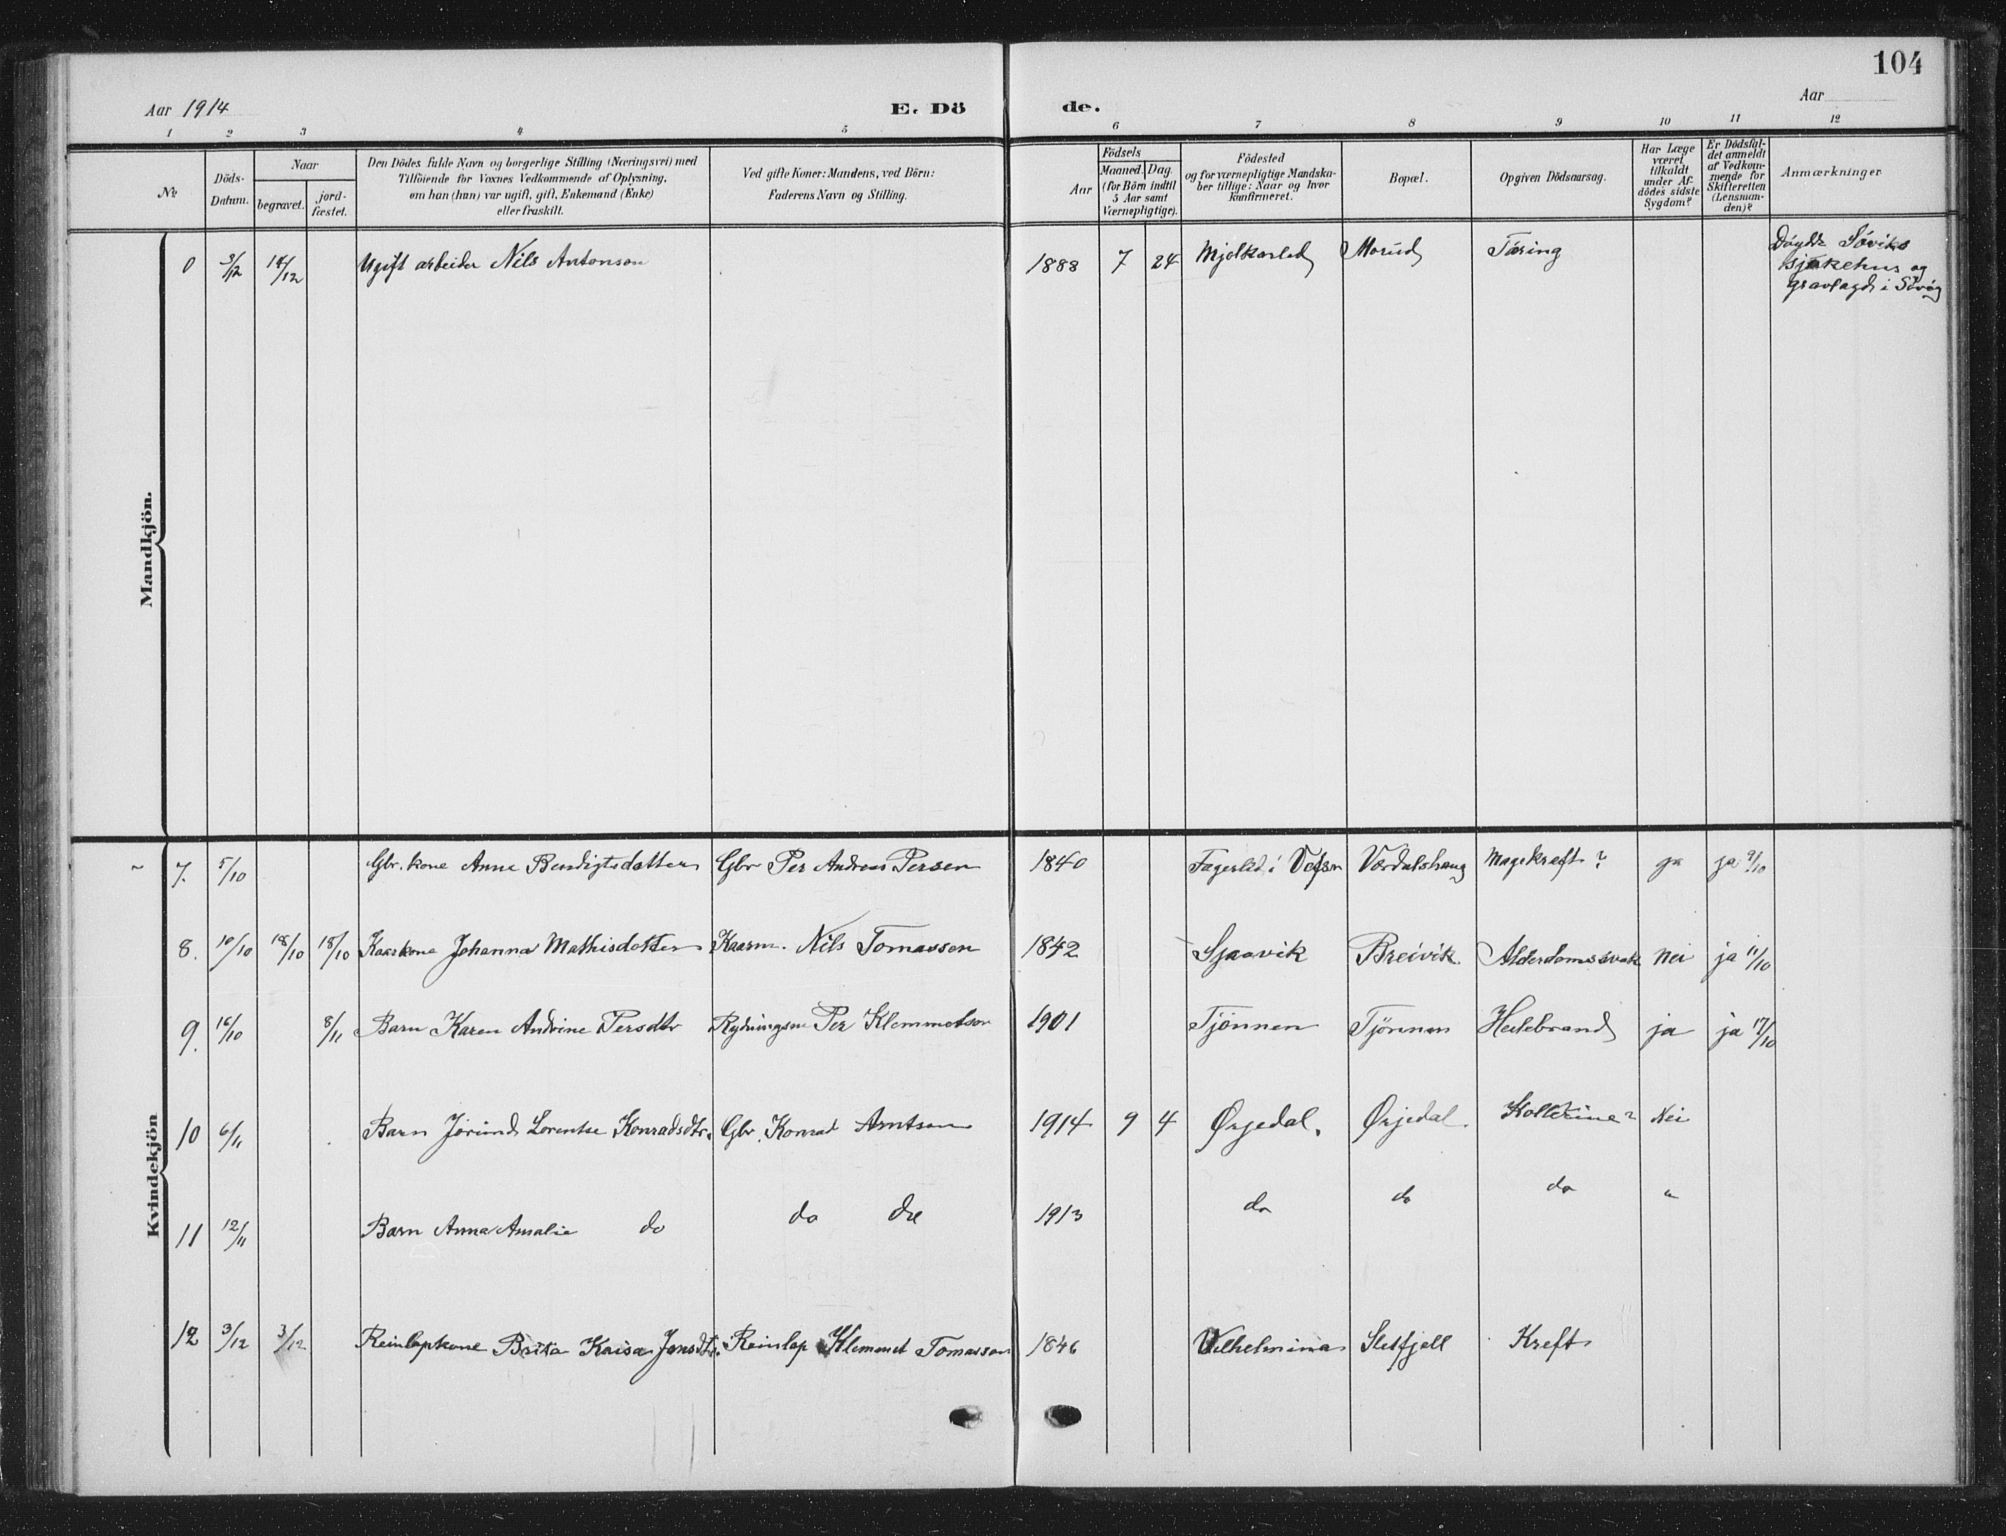 104
Aar 1914
E. Dö
de.
Aar
1 2 3 4 5 6 7 8 9 10 11 12
No
Döds-
Datum.
Naar
begravet.
jord-
fæstet.
Den Dödes fulde Navn og borgerlige Stilling (Næringsvei) med
Tilföiende for Voxnes Vedkommende af Oplysning,
om han (hun) var ugift, gift, Enkemand (Enke)
eller fraskilt.
Ved gifte Koner: Mandens, ved Börn:
Faderens Navn og Stilling.
Aar
Födsels
Maaned. Dag.
(for Börn indtil
5 Aar samt
Værnepligtige).
Födested
og for værnepligtige Mandska-
ber tillige: Naar og hvor
konfirmeret.
Bopæl.
Opgiven Dödsaarsag.
Har Læge
været
tilkaldt
under Af-
dödes sidste
Sygdom?
Er Dödsfal-
det anmeldt
af Vedkom-
mende for
Skifteretten
(Lensman-
den)?
Anmærkninger
Mandkjön.
0 3/12 18/12 Ugift arbeider Nils Antonson 1888 7 24 Mjølkarlid Morud Tæring
Døydde Søviks
sjukehus og
gravlagdt i
Kvindekjön
7. 5/10 Gbr. kone Anne Bendigtsdatter Gbr Per Andreas Persen 1840 Fagerlid i Vefsn Værdalshaug Mavekræft? ja ja 9/10
8. 10/10 18/10 18/10 Kaarkone Johanna Mathisdotter Kaarm. Nils Tomassen 1842 Sjaavik Breivik Alderdomssvak Nei ja 11/10
9. 16/10 8/11 Barn Karen Andrine Persdtr Rydningsm Per Klemmetson 1901 Tjønnen Tjønnen ja ja 17/10
10 6/11 Barn Jørund Lorentse Konradsdtr. Gbr. Konrad Arntsen 1914 9 4 Ørjedal. Ørjedal. Kolerine? Nei
11 12/11 Barn Anna Amalie do do dre 1913 do do do "
12 3/12 3/12 Reinlapkone Brita Kaisa Jonsdtr. Reinlap Klemmet Tomasson 1846 Vilhelmina Sletfjell Kreft